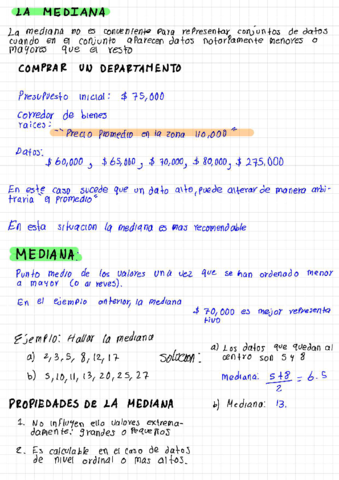 LA MEDIANA
La mediana no es conveniente para representar conjuntos de datos
cuando en el conjunto aparecen datos notoriamente menores o
mayores que el resto
COMPRAR UN DEPARTAMENTO
Presupuesto inicial: $ 75,000
Corredor de bienes
raices:
"Precio promedio en la zona 110,000"
Datos:
$ 60,000, $ 65,000, $ 70,000, $ 80,000, $ 275.000
En este caso sucede que un dato alto, puede alterar de manera arbi-
traria el promedio"
En esta situacion la mediana es mas recomendable
MEDIANA:
Punto medio de los valores una vez que se han ordenado menor
a mayor (o al reves).
En el ejemplo anterior, la mediana
$ 70,000 es mejor representa
tivo
Ejemplo: Hallar la mediana
a) 2, 3, 5, 8, 12, 17
b) 5, 10, 11, 13, 20, 25, 27
Solucion:
a) Los datos que quedan al
centro son 5 y 8
Mediana: 5+8/2 = 6.5
b) Mediana: 13.
PROPIEDADES DE LA MEDIANA
1. No influyen ello valores extrema-
damente: grandes o pequeños
2. Es calculable en el caso de datos
de nivel ordinal o mas altos.